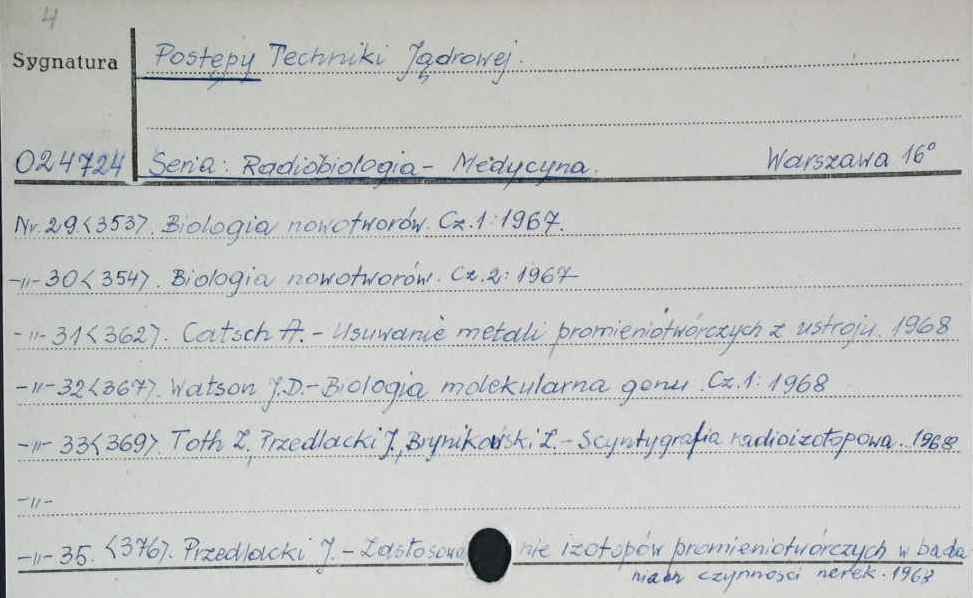 4
Sygnatura
Postępy Techniki Jądrowej.
024724 Seria: Radiobiologia - Medycyna. Warszawa 16°
Nr. 29.<353>. Biologia nowotworów. Cz.1: 1967.
-"- 30<354>. Biologia nowotworów. Cz.2: 1967
-"- 31<362>. Catsch A. - Usuwanie metali promieniotwórczych z ustroju. 1968
-"- 32<367>. Watson J.D. - Biologia molekularna genu. Cz.1: 1968
-"- 33<369>. Toth Z., Przedlacki J., Brynikowski Z. - Scyntygrafia radioizotopowa. 1968
-"-
-"- 35. <376>. Przedlacki J. - Zastosowanie izotopów promieniotwórczych w bada
niach czynności nerek. 1968